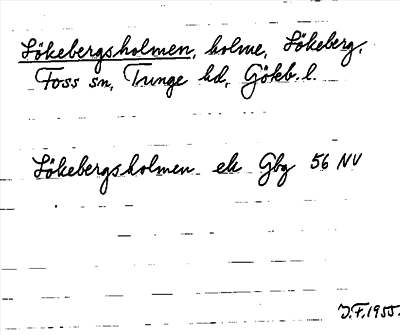 Lökebergsholmen, holme, Lökeberg,
Foss sn, Tunge hd, Götb. l.
Lökebergsholmen ek Gbg 56 NV
J.F. 1955.